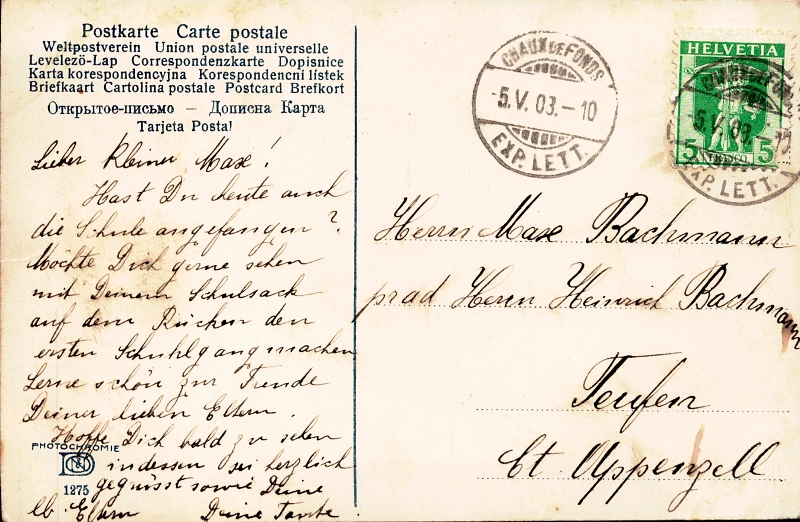 Postkarte Carte postale
Weltpostverein Union postale universelle
Levelezö-Lap Correspondenzkarte Dopisnice
Karta korespondencyjna Korespondencni lístek
Briefkaart Cartolina postale Postcard Brefkort
Открытое-письмо — Дописна Карта
Tarjeta Postal
Lieber kleiner Max!
Hast Du heute auch
die Schule angefangen?
Möchte Dich gerne sehen
mit Deinem Schulsack
auf dem Rücken den
ersten Schuhlgang machen
Lerne schön zur Freude
Deiner lieben Eltern.
Hoffe Dich bald zu sehen
indessen sei herzlich
gegrüsst sowie Deine
lb. Eltern Deine Tante
PHOTOCHROMIE
1275
CHAUX DE FONDS
5.V.03.-10
EXP. LETT.
HELVETIA
5 FRANCO 5
CHAUX DE FONDS
5.V.03.-10
EXP. LETT.
Herrn Max Bachmann
prad Herrn Heinrich Bachmann
Teufen
Ct Appenzell